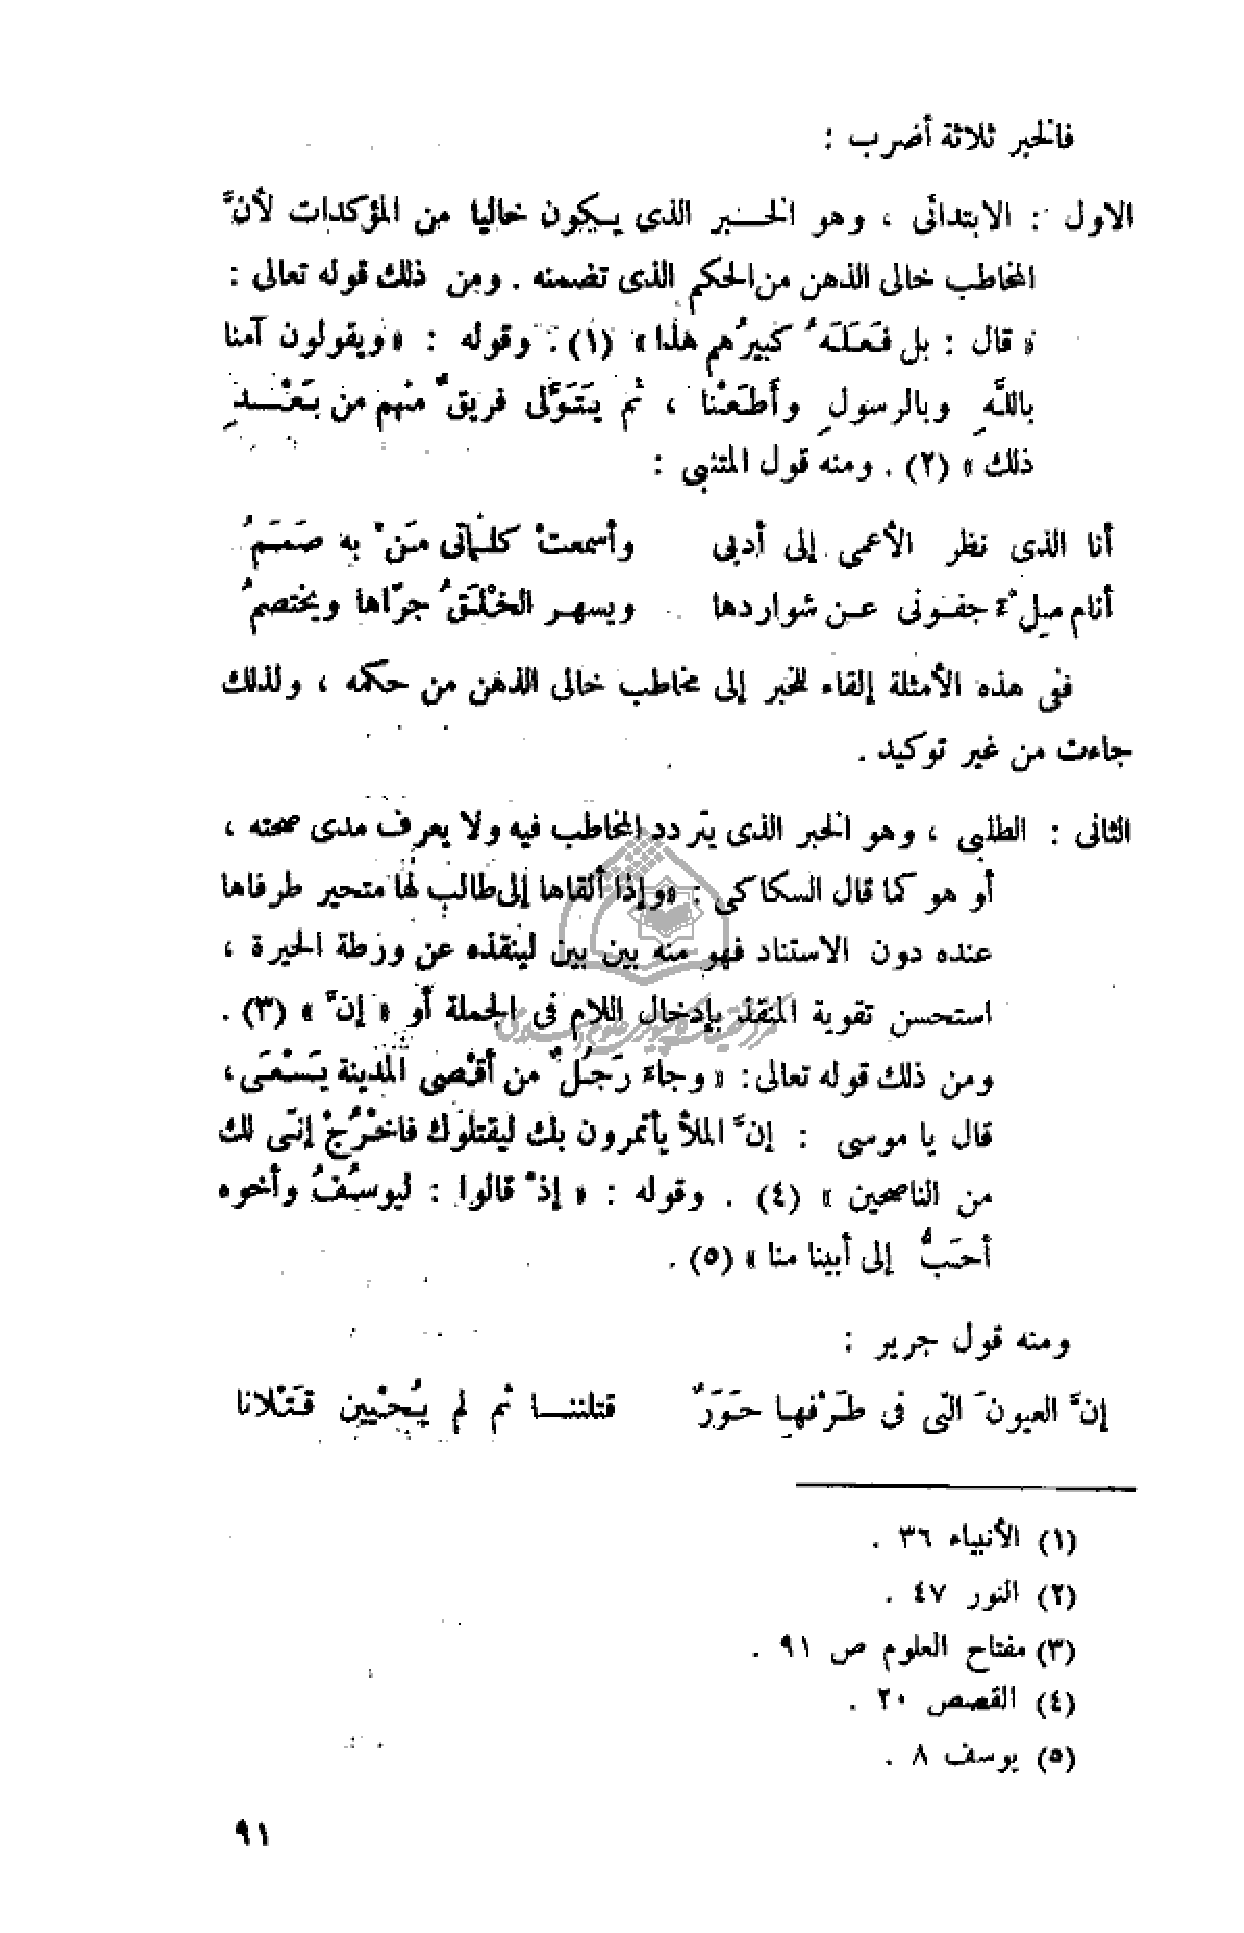 فالخبر ثلاثة أضرب :
الاول : الابتدائى ، وهو الخبر الذى يكون خاليا من المؤكدات لأنَّ
المخاطب خالى الذهن من الحكم الذى تضمنه . ومن ذلك قوله تعالى :
« قال : بل فَعَلَهُ كبيرُهم هذا » (١) . وقوله : « ويقولون آمنا
باللَّهِ وبالرسولِ وأَطَعْنا ، ثم يَتَوَلَّى فريقٌ منهم من بَعْدِ
ذلك » (٢) . ومنه قول المتنبى :
أنا الذى نظر الأعمى إلى أدبى وأسمعتْ كلماتى مَنْ به صَمَمُ
أنام مِلْءَ جفونى عن شواردها ويسهر الخَلْقُ جرّاها ويختصمُ
ففى هذه الأمثلة إلقاء للخبر إلى مخاطب خالى الذهن من حكمه ، ولذلك
جاءت من غير توكيد .
الثانى : الطلبى ، وهو الخبر الذى يتردد المخاطب فيه ولا يعرف مدى صحته ،
أو هو كما قال السكاكى : «وإذا ألقاها إلى طالب لها متحير طرفاها
عنده دون الاستناد فهو منه بين بين لينقذه عن ورطة الحيرة ،
استحسن تقوية المنقذ بإدخال اللام فى الجملة أو « إنَّ » (٣) .
ومن ذلك قوله تعالى: « وجاءَ رَجُلٌ من أقْصى المدينة يَسْعَى ،
قال يا موسى : إنَّ الملأ يأتمرون بك ليقتلوك فاخْرُجْ إنّى لك
من الناصحين » (٤) . وقوله : « إذْ قالوا : ليوسُفُ وأخوه
أحَبُّ إلى أبينا منا » (٥) .
ومنه قول جرير :
إنَّ العيونَ التى فى طَرْفها حَوَرٌ قتلننا ثم لم يُحْيين قَتْلانا
(١) الأنبياء ٣٦ .
(٢) النور ٤٧ .
(٣) مفتاح العلوم ص ٩١ .
(٤) القصص ٢٠ .
(٥) يوسف ٨ .
٩١